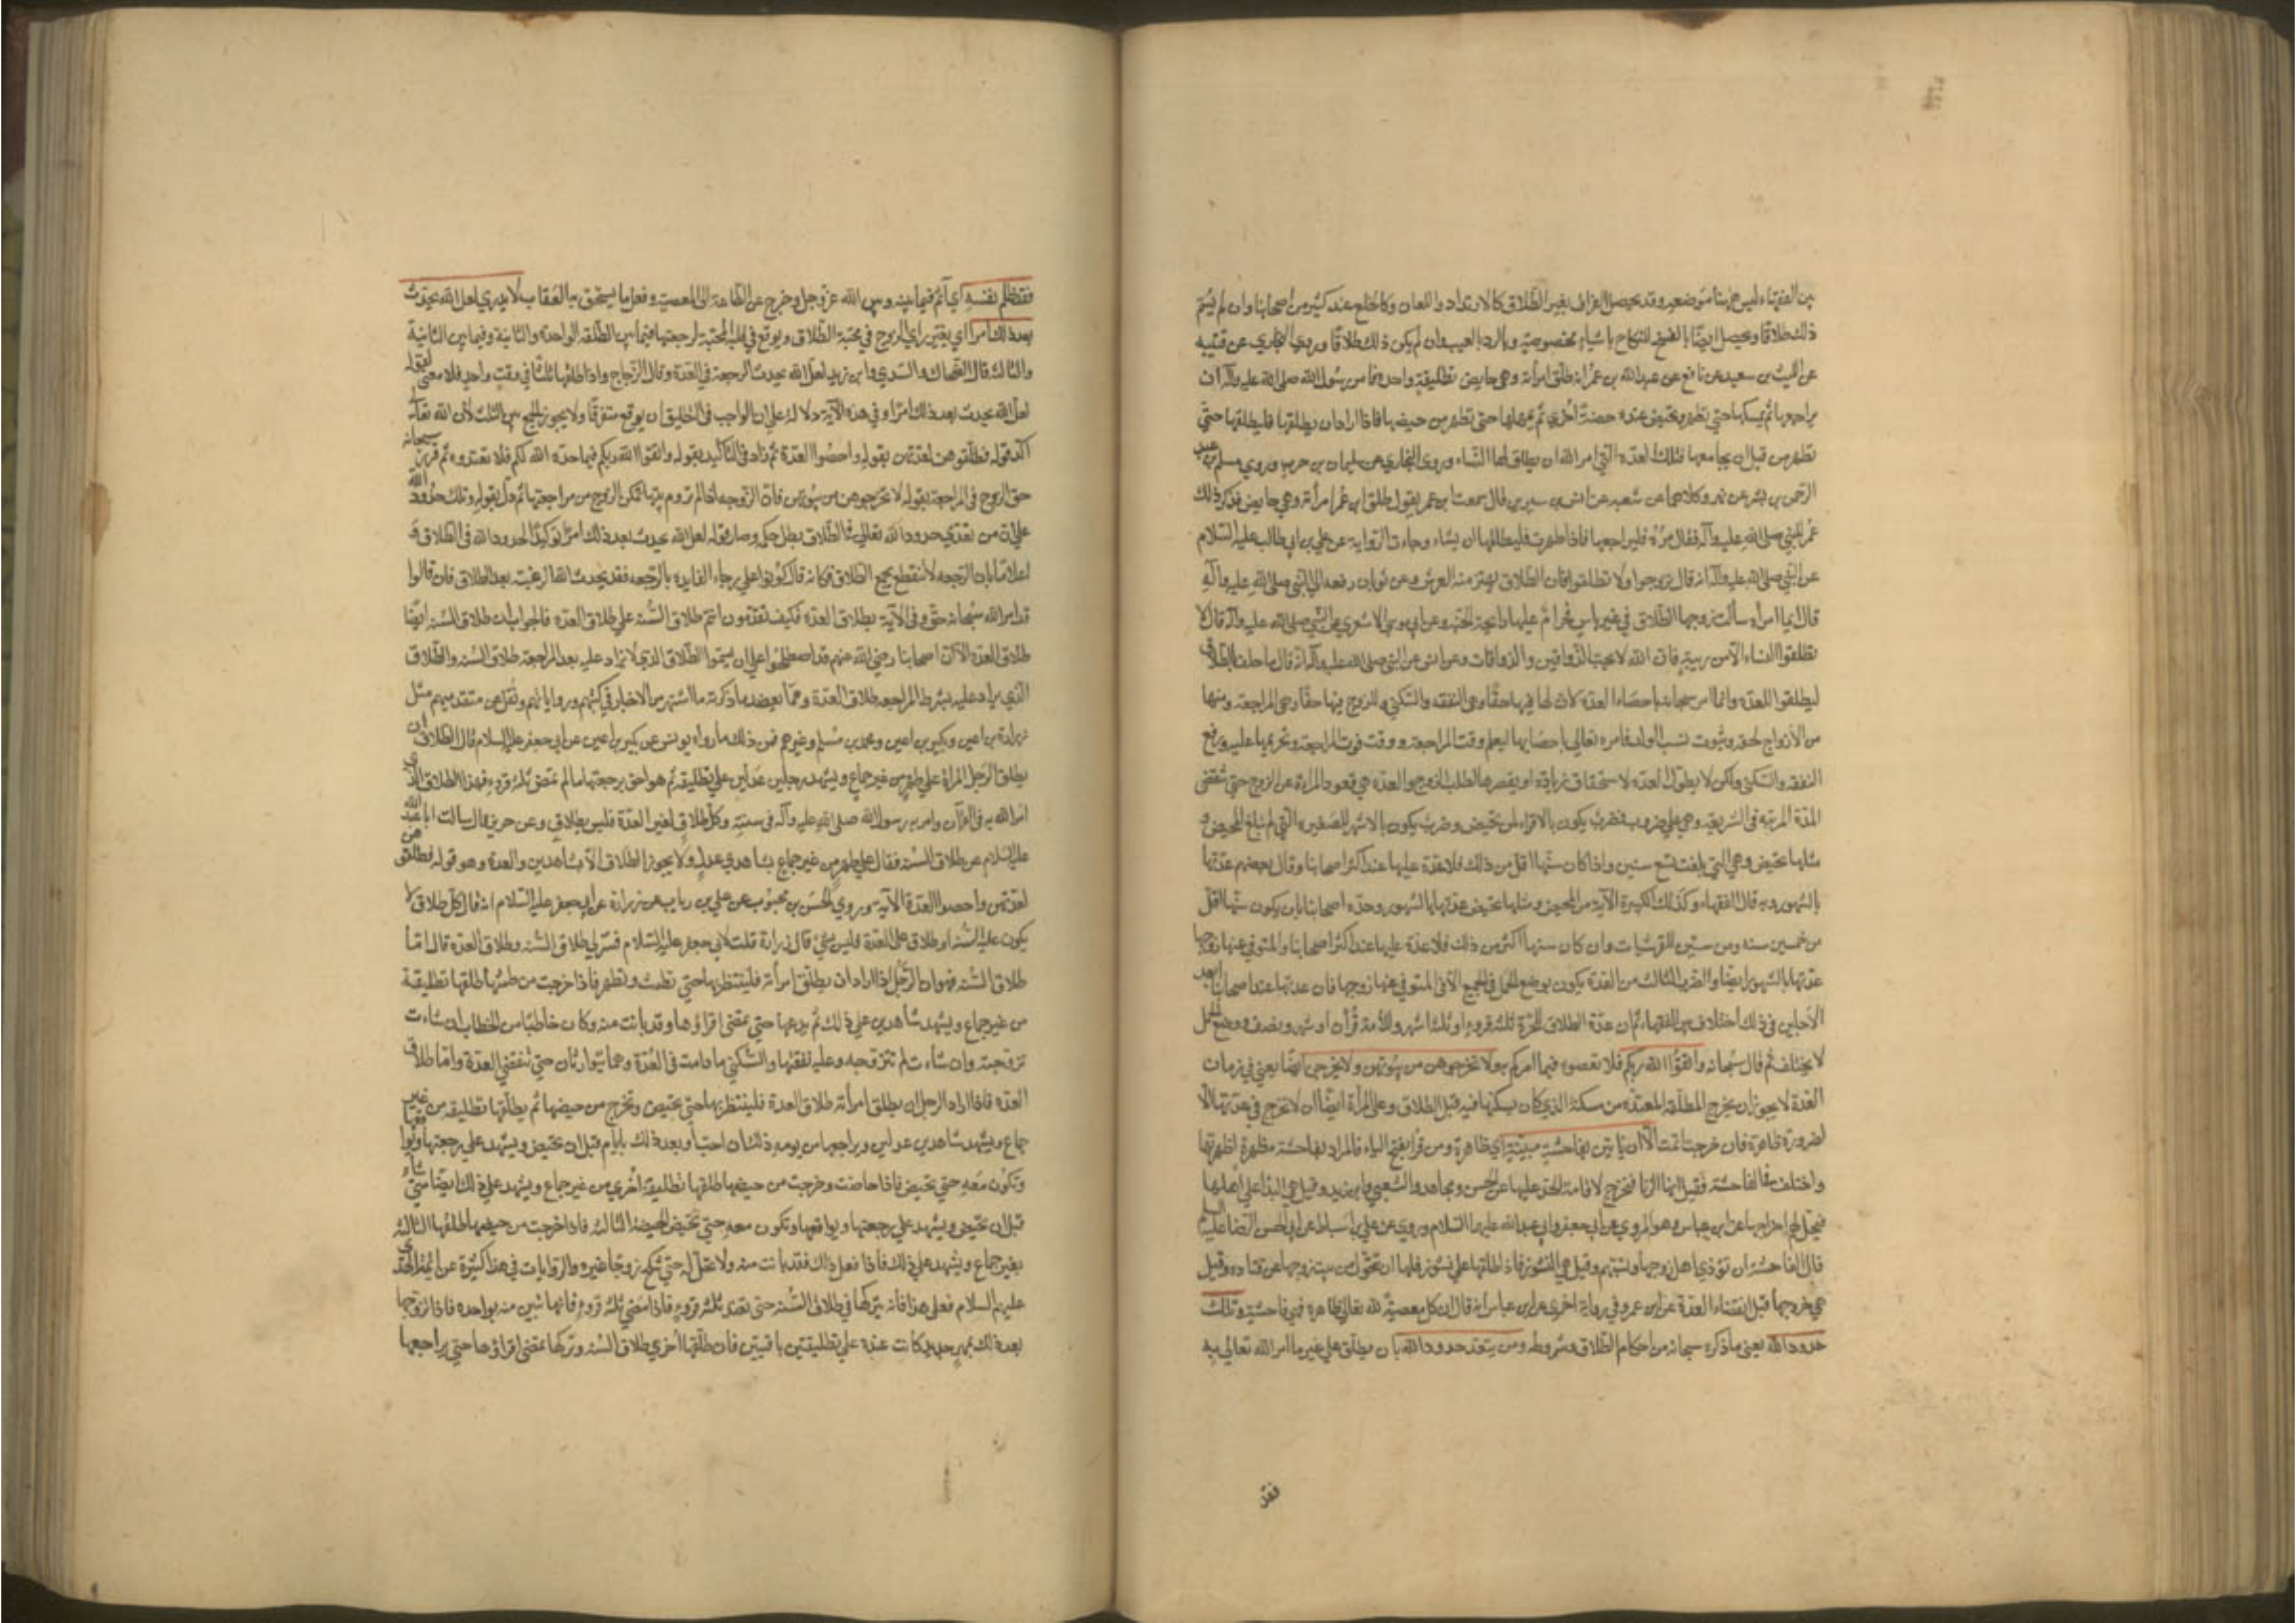 بين الفقهاء ليس ههنا موضعه وقد يحصل الفراق بغير الطلاق كالارتداد واللعان وكالخلع عند كثير من اصحابنا وان لم يسم
ذلك طلاقا ويحصل ايضا بالفسخ للنكاح باشياء مخصوصة وبالرد بالعيب وان لم يكن ذلك طلاقا وروي البخاري عن قتيبه
عن الليث بن سعيد عن نافع عن عبدالله بن عمر انه طلق امرأته وهي حايض تطليقة واحدة فامر رسول الله صلى الله عليه وآله ان
يراجعها ثم يمسكها حتى تطهر وتحيض عنده حيضة اخري ثم يمهلها حتى تطهر من حيضها فاذا اراد ان يطلقها فليطلقها حتى
تطهر من قبل ان يجامعها فتلك العدة التي امر الله ان يطلق لها النساء وروى البخاري عن سليمان بن حرب وروي مسلم عن عبد
الرحمن بن بشر عن بهز وكلاهما عن شعبه عن انس بن سيرين قال سمعت ابن عمر يقول طلق ابن عمر امرأته وهي حايض فذكر ذلك
عمر للنبي صلى الله عليه وآله فقال مره فليراجعها فاذا طهرت فليطلقها ان يشاء وجاءت الرواية عن علي بن ابي طالب عليه السلام
عن النبي صلى الله عليه وآله انه قال تزوجوا ولا تطلقوا فان الطلاق يهتز منه العرش وعن ثوبان رفعه الى النبي صلى الله عليه وآله
قال ايما امراة سألت زوجها الطلاق في غير باس فحرام عليها رايحة الجنة وعن ابي موسي الاشعري عن النبي صلى الله عليه وآله قال لا
تطلقوا النساء الا من ريبة فان الله لا يحب الذواقين والذواقات وعن انس عن النبي صلى الله عليه وآله انه قال ما حلف بالطلاق
ليطلقوا للعدة وانما امر سبحانه باحصاء العدة لان لها فيها حقا وهي النفقه والسكني وللزوج فيها حقا وهي المراجعة ومنعها
من الازواج لحقه وثبوت نسب الولد فامره تعالى باحصايها ليعلم وقت المراجعة ووقت فوت المراجعة وتحريمها عليه ورفع
النفقه والسكني ولكن لا يطول العدة لاستحقاق زيادة او يقصرها لطلب الزوج والعدة هي قعود المراة عن الزوج حتى تنقضي
المدة المرتبه في الشريعة وهي على ضروب فضرب يكون بالاقراء لمن تحيض وضرب يكون بالاشهر للصغيره التي لم تبلغ المحيض و
مثلها تحيض وهي التي بلغت تسع سنين واذا كان سنها اقل من ذلك فلا عدة عليها عند اكثر اصحابنا وقال بعضهم عدتها
بالشهور وبه قال الفقهاء وكذلك الكبيرة الآيسة من المحيض ومثلها تحيض عدتها بالشهور وحده اصحابنا بان يكون سنها اقل
من خمسين سنه ومن ستين للقرشيات وان كان سنها اكثر من ذلك فلا عدة عليها عند اكثر اصحابنا والمتوفي عنها زوجها
عدتها بالشهور ايضا والضرب الثالث من العدة يكون بوضع الحمل في الجميع الا في المتوفي عنها زوجها فان عدتها عند اصحابنا ابعد
الاجلين وفي ذلك اختلاف بين الفقهاء ثم ان عدة الطلاق للحرة ثلثة قروء او ثلثة اشهر وللامة قرآن او شهر ونصف ووضع الحمل
لا يختلف ثم قال سبحانه واتقوا الله ربكم فلا تعصوه فيما امركم به ولا تخرجوهن من بيوتهن ولا يخرجن ايضا يعني في زمان
العدة لا يجوز ان يخرج المطلقة المعتدة من مسكنه الذي كان يسكنها فيه قبل الطلاق وعلى المرأة ايضا ان لا تخرج في عدتها الا
لضرورة ظاهرة فان خرجت اثمت الا ان ياتين بفاحشة مبينة اي ظاهرة ومن قرأ بفتح الياء فالمراد بفاحشة مظهرة اظهرتها
واختلف في الفاحشة فقيل انها الزنا فتخرج لاقامة الحد عليها عن الحسن ومجاهد والشعبي وابن زيد وقيل هي البذا على اهلها
فيحل لهم اخراجها عن ابن عباس وهو المروي عن ابي جعفر وابي عبدالله عليهما السلام وروي عن علي بن اسباط عن ابي الحسن الرضا عليه السلم
قال الفاحشة ان تؤذي اهل زوجها وتشتمهم وقيل هي النشوز فاذا طلقها على نشوز فلها ان تتحول من بيت زوجها عن قتاده وقيل
هي خروجها قبل انقضاء العدة عن ابن عمر وفي رواية اخري عن ابن عباس انه قال ان كل معصية لله تعالى ظاهرة فهي فاحشة وتلك
حدود الله يعني ما ذكره سبحانه من احكام الطلاق وشروطه ومن يتعد حدود الله بان يطلق على غير ما امر الله تعالى به
فقد
فقد ظلم نفسه اي اثم فيما بينه وبين الله عز وجل وخرج عن الطاعة الى المعصية وفعل ما يستحق به العقاب لا يدري لعل الله يحدث
بعد ذلك امرا اي يغير راي الزوج في محبة الطلاق ويوقع في قلبه المحبة لرجعتها فيما بين الطلقة الواحدة والثانية وفيما بين الثانية
والثالثة قال الضحاك والسدي وابن زيد لعل الله يحدث الرجعة في العدة وقال الزجاج واذا طلقها ثلثا في وقت واحد فلا معنى لقوله
لعل الله يحدث بعد ذلك امرا وفي هذه الآية دلالة على ان الواجب في التطليق ان يوقع متفرقا ولا يجوز الجمع بين الثلث لان الله تعالى
اكد قوله فطلقوهن لعدتهن بقوله واحصوا العدة ثم زاد في التاكيد بقوله واتقوا الله ربكم فيما حده الله لكم فلا تعتدوه ثم قرن سبحانه
حق الزوج في المراجعة بقوله لا تخرجوهن من بيوتهن فان الزوجه اذا لم ترم بيتها تمكن الزوج من مراجعتها ثم دل بقوله وتلك حدود الله
على ان من تعدي حدود الله تعالى في الطلاق بطل حكمه وصار قوله لعل الله يحدث بعد ذلك امرا توكيدا لحدود الله في الطلاق و
اعلاما بان الرجعه لا تنقطع بجمع الطلاق فكانه قال كونوا على رجاء الفايده بالرجعه فقد يحدث الله الرغبة بعد الطلاق فان قالوا
قد امر الله سبحانه في الآية بطلاق العدة فكيف تقدمون انتم طلاق السنة على طلاق العدة فالجواب ان طلاق السنة ايضا
طلاق العدة الا ان اصحابنا رضي الله عنهم قد اصطلحوا على ان يسموا الطلاق الذي لا يزاد عليه بعد المراجعة طلاق السنه والطلاق
الذي يزاد عليه بشرط المراجعه طلاق العدة ومما يعضد ما ذكرته ما اشتهر من الاخبار في كتبهم ورواياتهم ونقل عن متقدميهم مثل
زرارة بن اعين وبكير بن اعين ومحمد بن مسلم وغيرهم فمن ذلك ما رواه يونس عن بكير بن اعين عن ابي جعفر عليه السلام قال الطلاق ان
يطلق الرجل المراة على طهر من غير جماع ويشهد رجلين عدلين على تطليقه ثم هو احق برجعتها ما لم تمض ثلثة قروء فهذا الطلاق الذي
امر الله به في القرآن وامر به رسول الله صلى الله عليه وآله في سنته وكل طلاق لغير العدة فليس بطلاق وعن حريز قال سالت ابا عبد الله
عليه السلام عن طلاق السنه فقال على طهر من غير جماع بشاهدي عدل ولا يجوز الطلاق الا بشاهدين والعدة وهو قوله فطلقوهن
لعدتهن واحصوا العدة الآية وروي الحسن بن محبوب عن علي بن رياب عن زرارة عن ابي جعفر عليه السلام انه قال كل طلاق لا
يكون على السنه او طلاق على العدة فليس بشئ قال زرارة قلت لابي جعفر عليه السلام فسر لي طلاق السنة وطلاق العدة قال اما
طلاق السنه فهو ان الرجل اذا اراد ان يطلق امرأته فلينتظر بها حتى تطمث وتطهر فاذا خرجت من طمثها طلقها تطليقة
من غير جماع ويشهد شاهدين على ذلك ثم يدعها حتى تمضي اقراؤها وقد بانت منه وكان خاطبا من الخطاب ان شاءت
تزوجته وان شاءت لم تتزوجه وعليه نفقتها والسكني ما دامت في العدة وهما يتوارثان حتى تنقضي العدة واما طلاق
العدة فاذا اراد الرجل ان يطلق امرأته طلاق العدة فلينتظر بها حتى تحيض وتخرج من حيضها ثم يطلقها تطليقة من غير
جماع ويشهد شاهدين عدلين ويراجعها من يومه ذلك ان احب او بعد ذلك بايام قبل ان تحيض ويشهد على رجعتها ويواقعها
وتكون معه حتى تحيض فاذا حاضت وخرجت من حيضها طلقها تطليقة اخري من غير جماع ويشهد على ذلك ايضا متى شاء
قبل ان تحيض ويشهد على رجعتها ويواقعها وتكون معه حتى تحيض الحيضة الثالثة فاذا خرجت من حيضها طلقها الثالثة
بغير جماع ويشهد على ذلك فاذا فعل ذلك فقد بانت منه ولا تحل له حتى تنكح زوجا غيره والروايات في هذا كثيرة عن ائمة الهدى
عليهم السلام فعلى هذا فانه يتركها في طلاق السنة حتى تعتد ثلثة قروء فاذا مضي ثلثة قروء فانها تبين منه بواحده فاذا تزوجها
بعد ذلك بمهر جديد كانت عنده على تطليقتين باقيتين فان طلقها اخري طلاق السنه وتركها تمضي اقراؤها حتى يراجعها